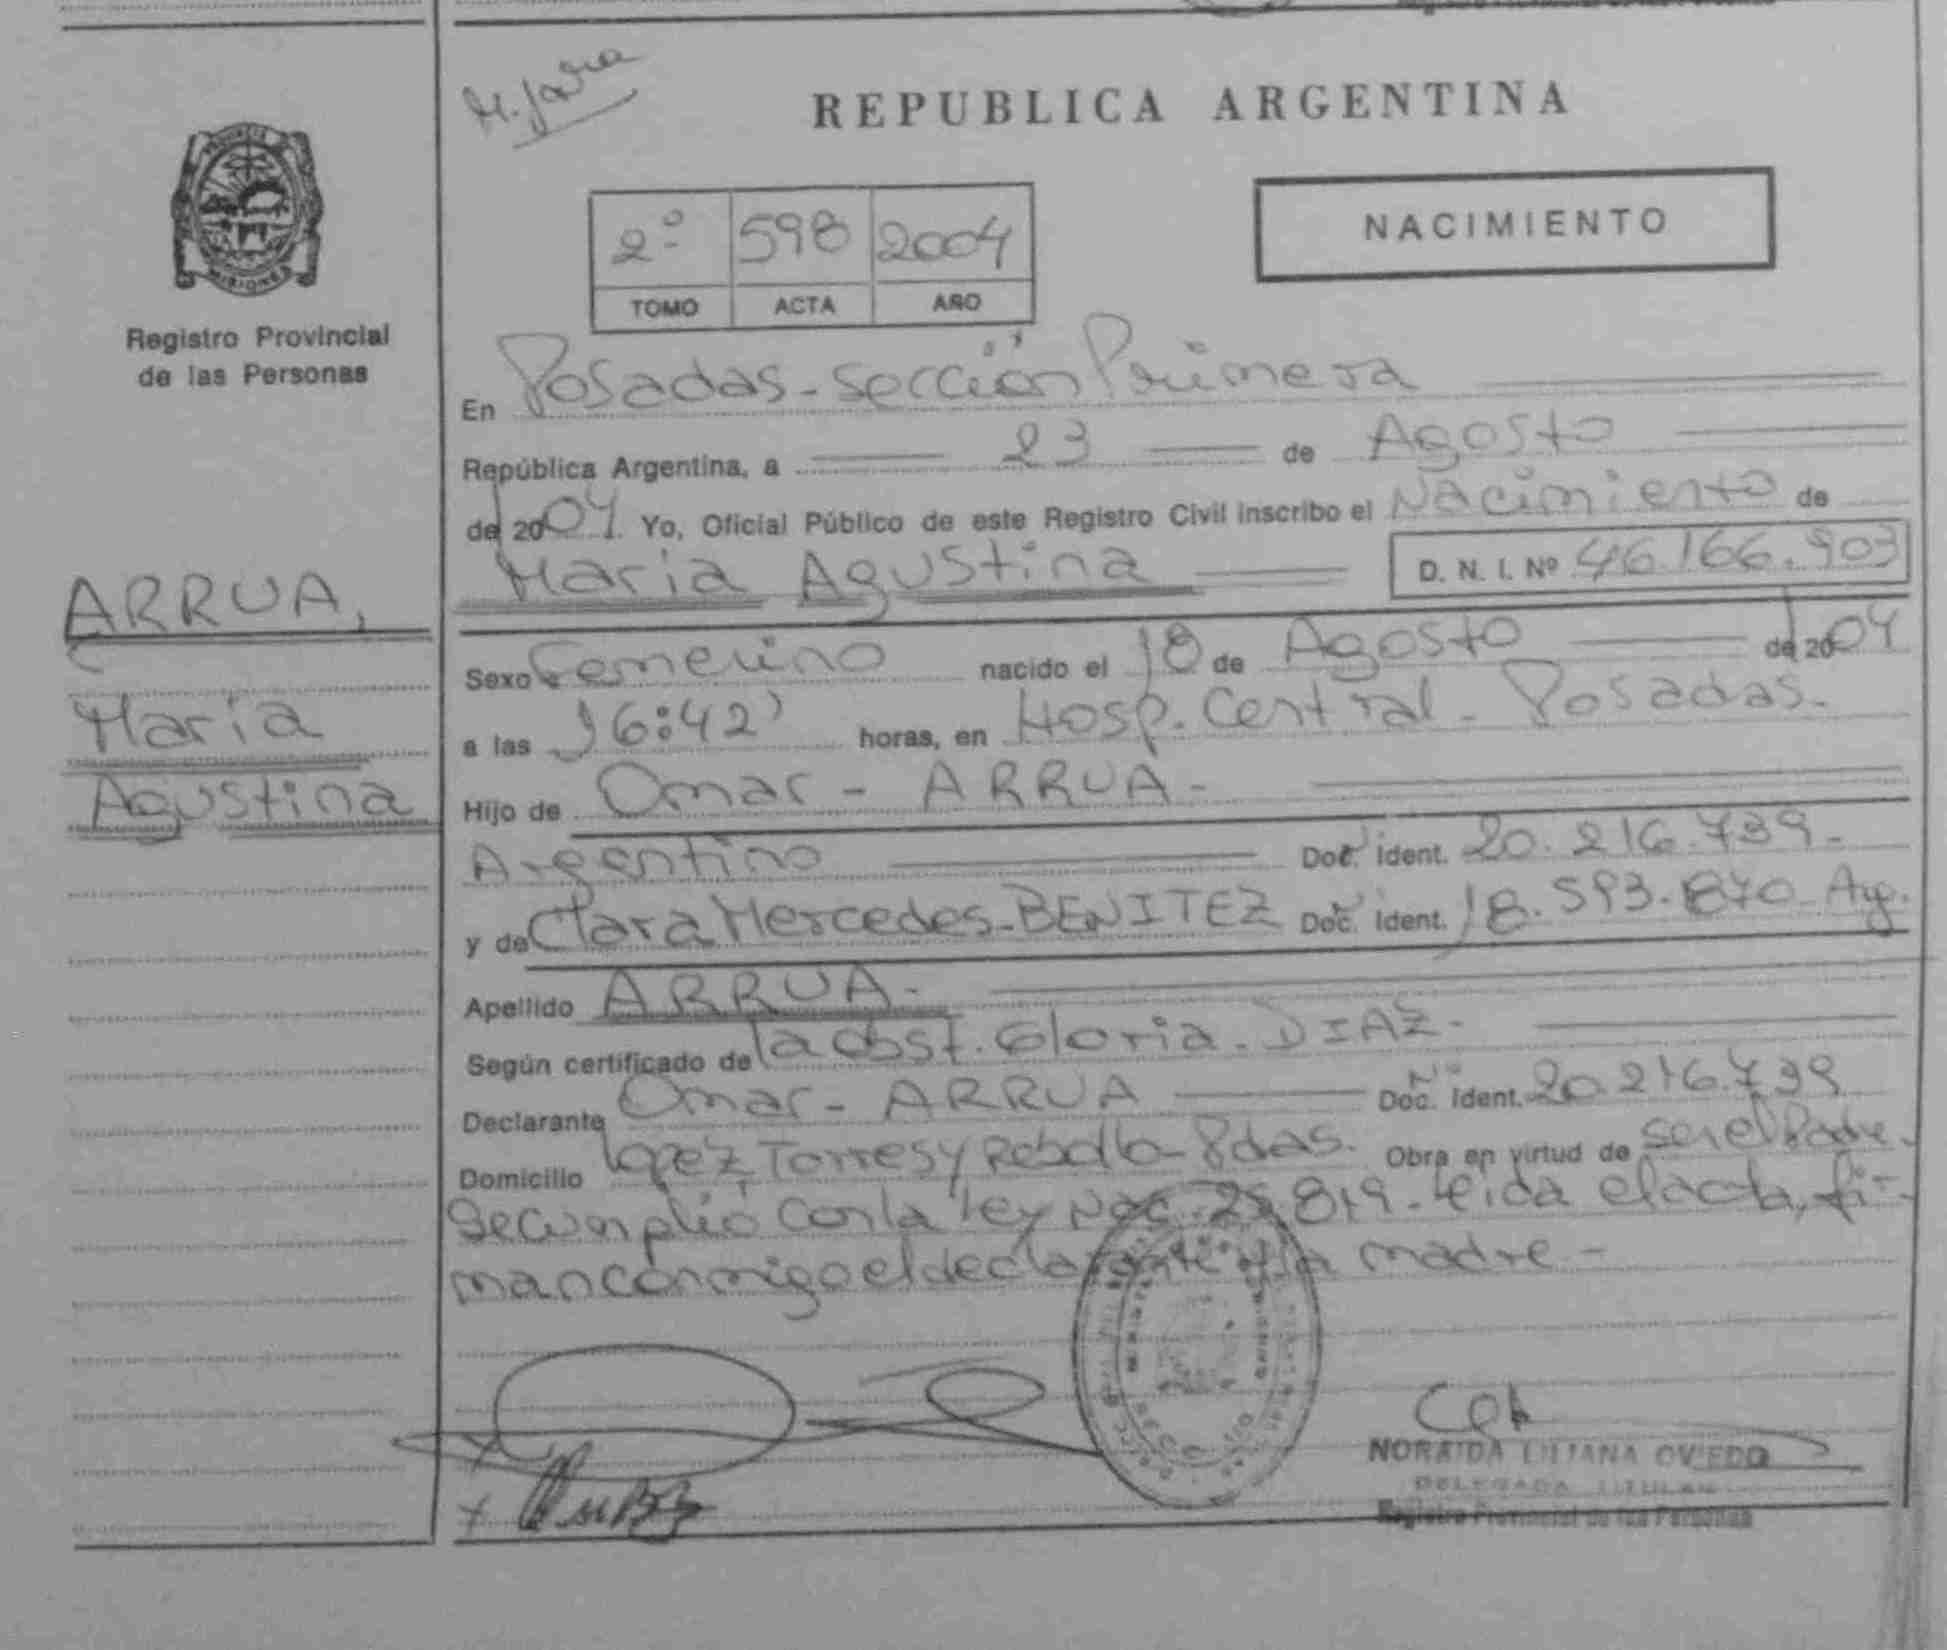 H. Jara
REPUBLICA ARGENTINA
MISIONES
Registro Provincial
de las Personas
2º 598 2004
TOMO ACTA AÑO
NACIMIENTO
En Posadas - sección Primera
República Argentina, a 23 de Agosto
de 2004. Yo, Oficial Público de este Registro Civil inscribo el Nacimiento de
Maria Agustina D. N. I. Nº 46.166.903
ARRUA,
Maria
Agustina
Sexo Femenino nacido el 18 de Agosto de 2004
a las 16:42' horas, en Hosp. Central - Posadas.
Hijo de Omar - ARRUA -
Argentino Doc. Ident. 20.216.739-
y de Clara Mercedes - BENITEZ Doc. Ident. 18.593.870 - Arg.
Apellido ARRUA -
Según certificado de la obst. Gloria - DIAZ -
Declarante Omar - ARRUA Doc. Ident. 20.216.739
Domicilio Lopez Torres y Rebollo - Pdas. Obra en virtud de ser el Padre.
Se cumplió con la ley Nac. 25.819 - leida el acta, fir-
man conmigo el declarante y la madre -
NORAIDA LILIANA OVIEDO
DELEGADA TITULAR
Registro Provincial de las Personas